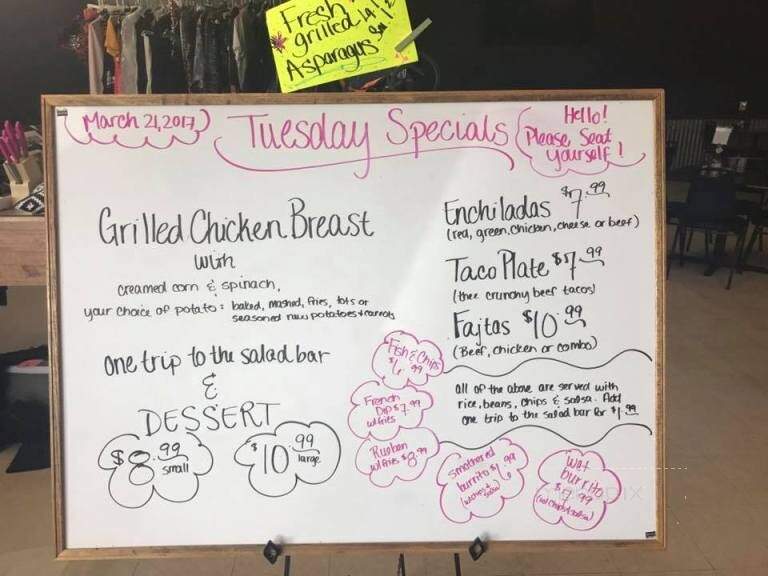 Fresh
grilled
Asparagus
March 21, 2017
Tuesday Specials
Hello!
Please Seat
yourself!
Grilled Chicken Breast
with
creamed corn & spinach,
your choice of potato: baked, mashed, fries, tots or
seasoned new potatoes & carrots
one trip to the salad bar
&
DESSERT
$8.99
small
$10.99
large
Enchiladas $7.99
(red, green, chicken, cheese or beef)
Taco Plate $7.99
(three crunchy beef tacos)
Fajtas $10.99
(Beef, chicken or combo)
all of the above are served with
rice, beans, chips & salsa. Add
one trip to the salad bar for $1.99
Fish & Chips
French
Dip $7.99
w/fries
Rueben
w/fries $8.99
Smothered
burrito
Wet
burrito
$7.99